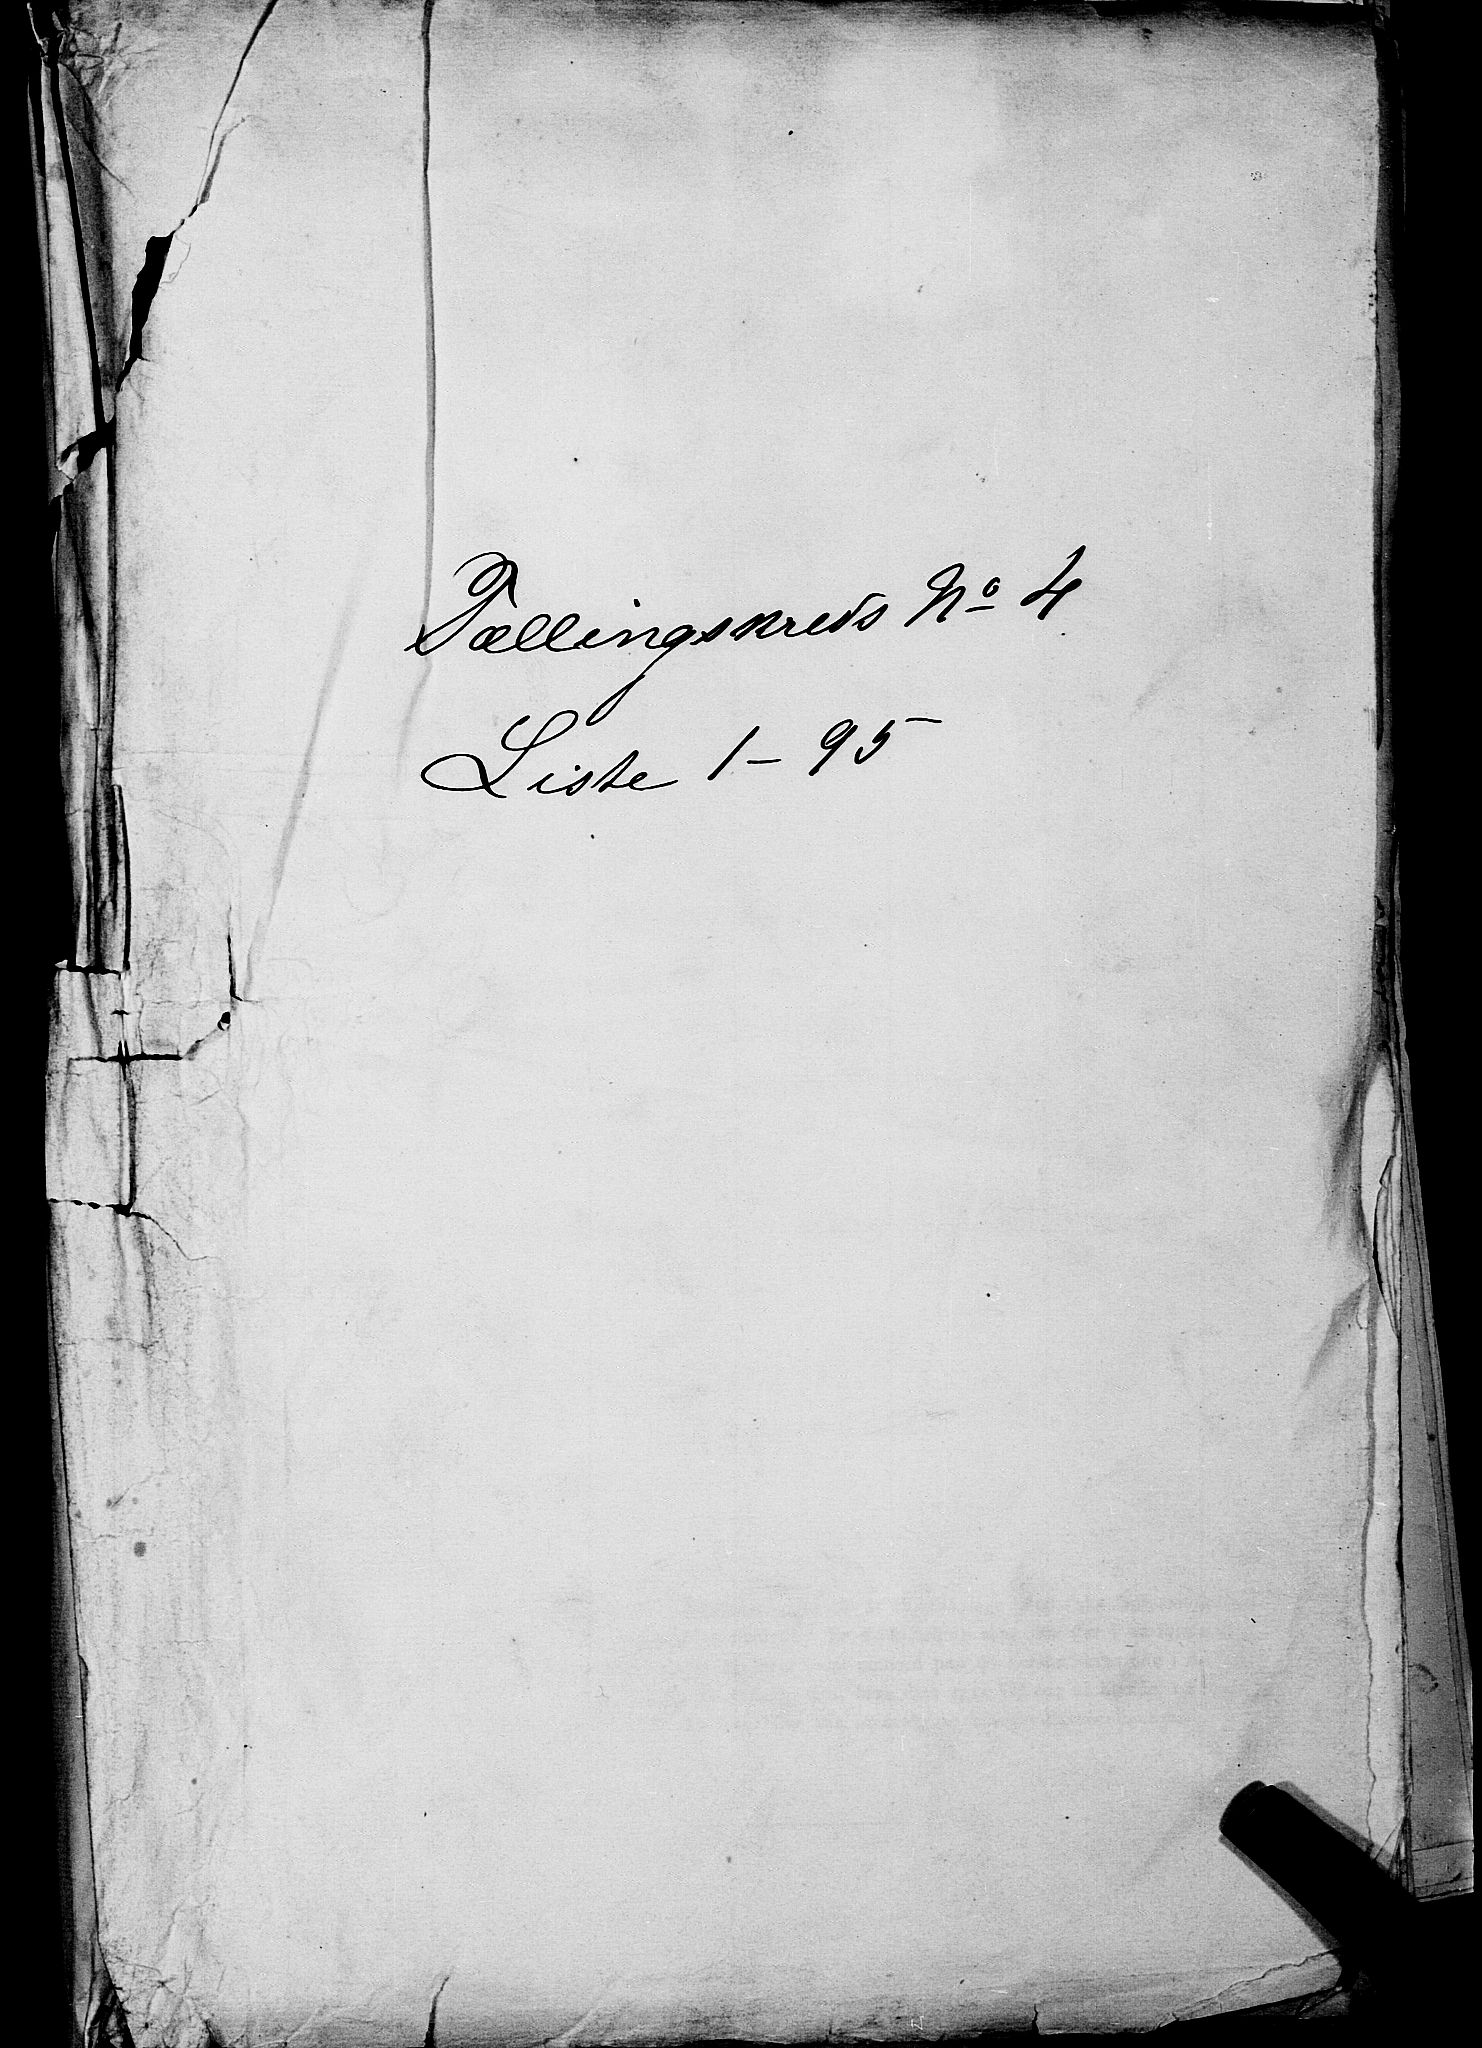 Tællingskreds No 4
Liste 1 - 95